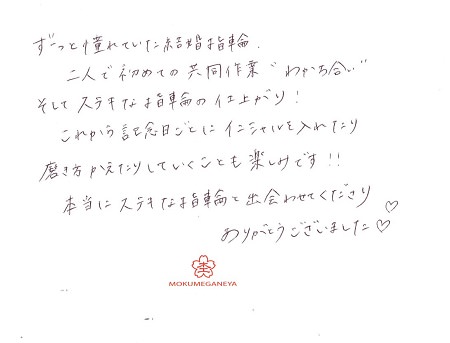 ずーっと憧れていた結婚指輪。
二人で初めての共同作業“わかち合い”
そしてステキな指輪の仕上がり！
これから記念日ごとにイニシャルを入れたり
磨き方かえたりしていくことも楽しみです！！
本当にステキな指輪と出会わせてくださり♡
ありがとうございました♡
杢
MOKUMEGANEYA